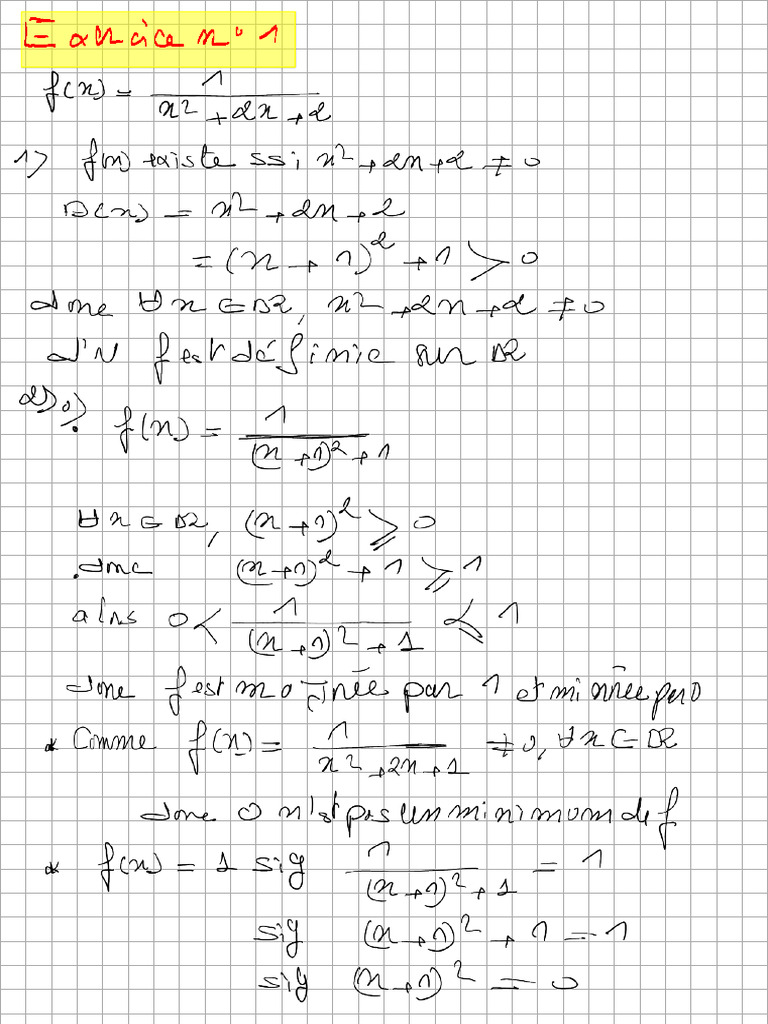 Exercice n° 1
f(x) = 1 / (x² + 2x + 2)
1) f(x) existe ssi x² + 2x + 2 ≠ 0
D(x) = x² + 2x + 2
= (x + 1)² + 1 > 0
donc ∀ x ∈ ℝ, x² + 2x + 2 ≠ 0
d'où f est définie sur ℝ
2) a) f(x) = 1 / ((x + 1)² + 1)
∀ x ∈ ℝ, (x + 1)² ⩾ 0
donc (x + 1)² + 1 ⩾ 1
alors 0 < 1 / ((x + 1)² + 1) ⩽ 1
donc f est majorée par 1 et minorée par 0
* Comme f(x) = 1 / (x² + 2x + 1) ≠ 0, ∀ x ∈ ℝ
donc 0 n'est pas un minimum de f
* f(x) = 1 sig 1 / ((x + 1)² + 1) = 1
sig (x + 1)² + 1 = 1
sig (x + 1)² = 0